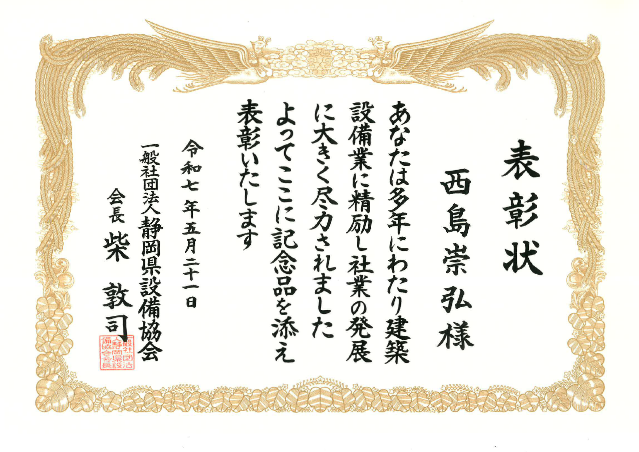 表彰状
西島崇弘様
あなたは多年にわたり建築
設備業に精励し社業の発展
に大きく尽力されました
よってここに記念品を添え
表彰いたします
令和七年五月二十一日
一般社団法人静岡県設備協会
会長 柴敦司